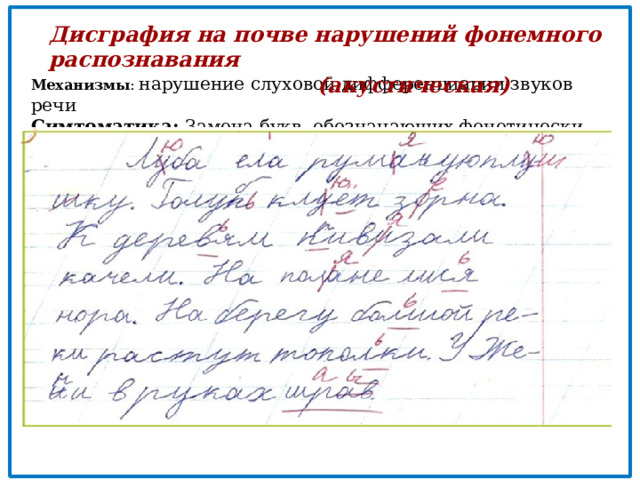 Дисграфия на почве нарушений фонемного
распознавания
(акустическая)
Механизмы: нарушение слуховой дифференциации звуков
речи
Симтоматика: Замена букв, обозначающих фонетически
Луба ела румануюплуш
шку. Голунь клует зорна.
К деревям Кивизали
качели. На полане лися
нора. На берегу болшой ре-
ки растут тополки. У Же-
ни в руках шрав.